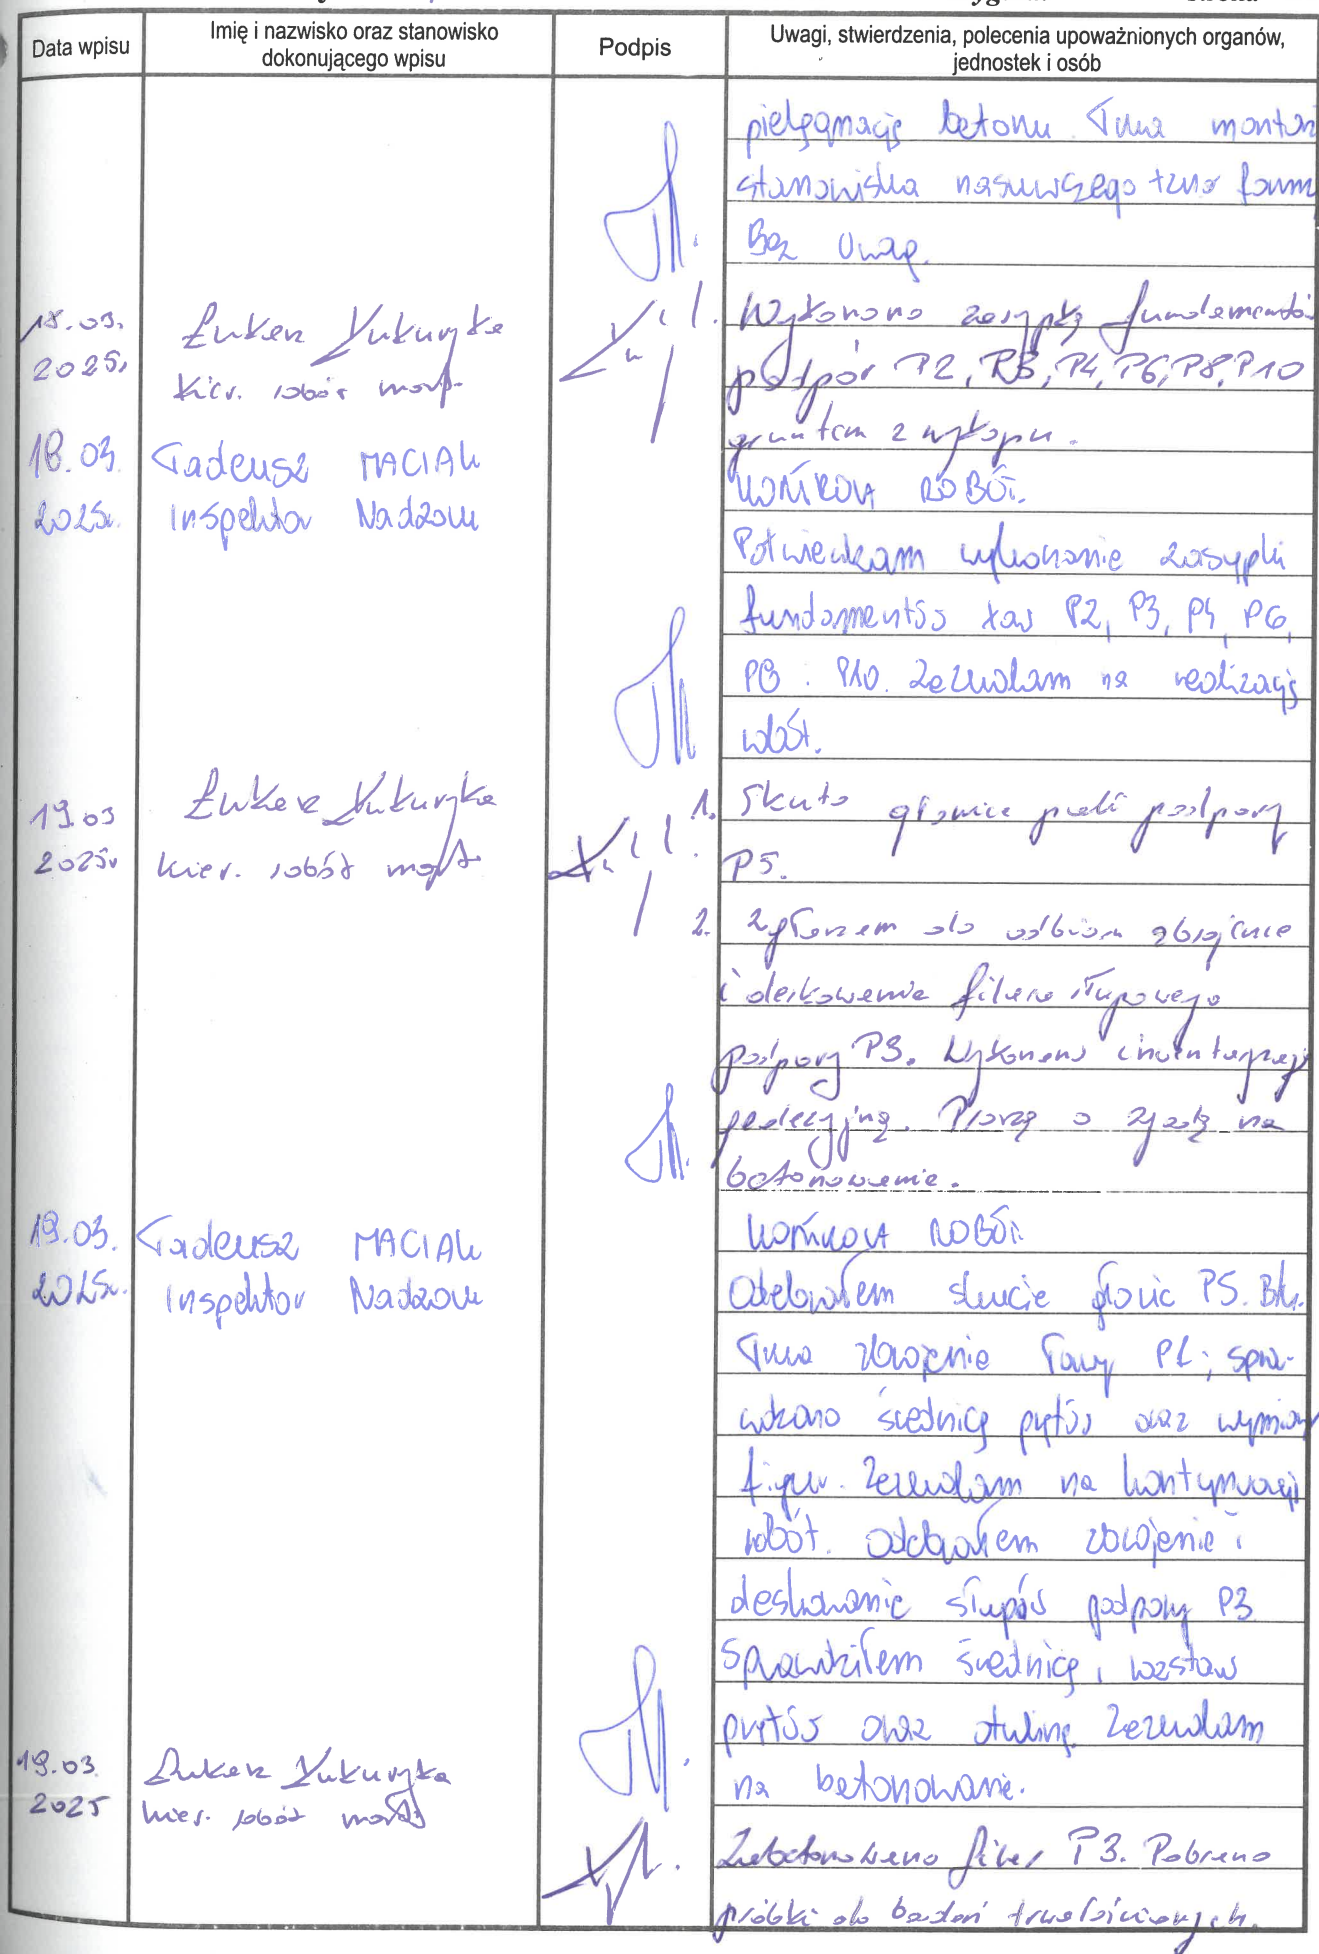 Data wpisu
Imię i nazwisko oraz stanowisko
dokonującego wpisu
Podpis
Uwagi, stwierdzenia, polecenia upoważnionych organów,
jednostek i osób
pielęgnację betonu. Trwa montaż
stanowiska nasuwczego tzw form
Bez uwag.
18.03.
2025r
Łukasz Kukuryka
kier. robót most.
1. Wykonano zasypkę fundamentów
podpór P2, P3, P4, P6, P8, P10
gruntem z wykopu.
18.03.
2025r.
Tadeusz MACIAK
Inspektor Nadzoru
KONTROLA ROBÓT.
Potwierdzam wykonanie zasypki
fundamentów ław P2, P3, P4, P6,
P8 i P10. Zezwalam na realizację
robót.
19.03
2025r
Łukasz Kukuryka
kier. robót most.
1. Skuto głowice pali podpory
P5.
2. Zgłaszam do odbioru zbrojenie
i deskowanie filara słupowego
podpory P3. Wykonano inwentaryzację
geodezyjną. Proszę o zgodę na
betonowanie.
19.03.
2025r.
Tadeusz MACIAK
Inspektor Nadzoru
KONTROLA ROBÓT.
Odebrałem skucie głowic P5.
Trwa zbrojenie ławy P1; spra-
wdzono średnicę prętów oraz wymiary
figur. Zezwalam na kontynuację
robót. Odebrałem zbrojenie i
deskowanie słupów podpory P3
Sprawdziłem średnicę, rozstaw
prętów oraz otulinę. Zezwalam
na betonowanie.
19.03.
2025
Łukasz Kukuryka
kier. robót most.
Zabetonowano filar P3. Pobrano
próbki do badań wytrzymałościowych.